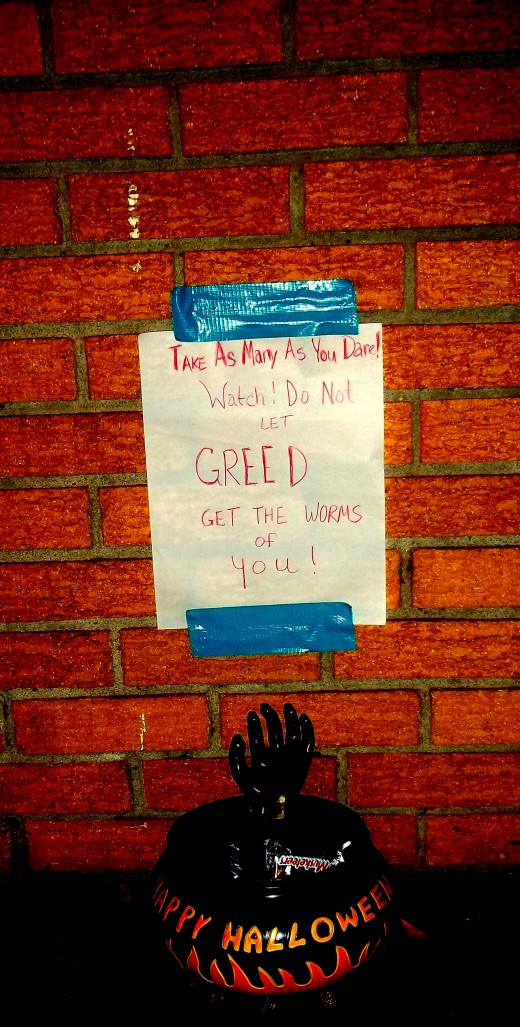 TAKE AS MANY AS YOU DARE!
Watch! Do Not
LET
GREED
GET THE WORMS
OF
YOU!
Musketeers
HAPPY HALLOWEEN